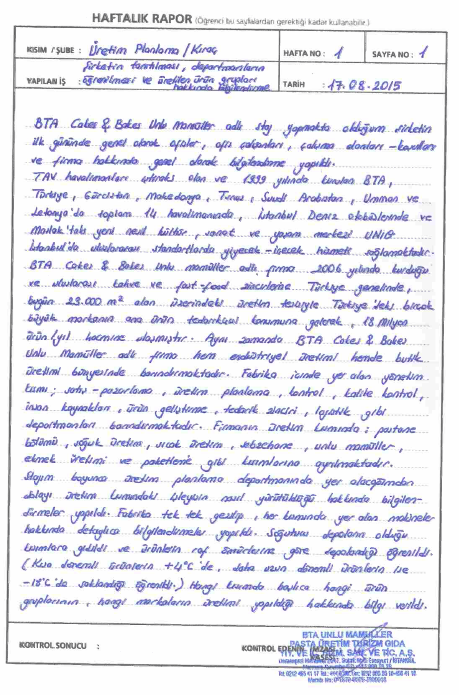 HAFTALIK RAPOR (Öğrenci bu sayfalardan gerektiği kadar kullanabilir.)
KISIM / ŞUBE : Üretim Planlama / Kıraç
HAFTA NO : 1
SAYFA NO : 1
YAPILAN İŞ : Şirketin tanıtılması, departmanların
öğrenilmesi ve üretilen ürün grupları
hakkında bilgilendirme
TARİH : 17.08.2015
BTA Cakes & Bakes Unlu Mamüller adlı staj yapmakta olduğum şirketin
ilk gününde genel olarak ofisler, ofis çalışanları, çalışma alanları - konuları
ve firma hakkında genel olarak bilgilendirme yapıldı.
TAV havalimanları iştiraki olan ve 1999 yılında kurulan BTA,
Türkiye, Gürcistan, Makedonya, Tunus, Suudi Arabistan, Umman ve
Letonya'da toplam 14 havalimanında, İstanbul Deniz otobüslerinde ve
Maslak'taki yeni nesil kültür, sanat ve yaşam merkezi UNIQ
İstanbul'da uluslararası standartlarda yiyecek-içecek hizmeti sağlamaktadır.
BTA Cakes & Bakes unlu mamüller adlı firma 2006 yılında kurduğu
ve uluslarası kahve ve fast-food zincirlerine Türkiye genelinde,
bugün 23.000 m² alan üzerindeki üretim tesisiyle Türkiye'deki birçok
büyük markanın ana ürün tedarikçisi konumuna gelerek, 18 Milyon
ürün/yıl hacmine ulaşmıştır. Aynı zamanda BTA Cakes & Bakes
Unlu Mamüller adlı firma hem endüstriyel üretimi hemde butik
üretimi bünyesinde barındırmaktadır. Fabrika içinde yer alan yönetim
kısmı; satış-pazarlama, üretim planlama, kontrol, kalite kontrol,
insan kaynakları, ürün geliştirme, tedarik zinciri, lojistik gibi
departmanları barındırmaktadır. Firmanın üretim kısmında; pastane
bölümü, soğuk üretim, sıcak üretim, sebzehane, unlu mamüller,
ekmek üretimi ve paketleme gibi kısımlarına ayrılmaktadır.
Stajım boyunca üretim planlama departmanında yer alacağımdan
dolayı üretim kısmındaki işleyişin nasıl yürütüldüğü hakkında bilgilen-
dirmeler yapıldı. Fabrika tek tek gezilip, her kısımda yer alan makineler
hakkında detaylıca bilgilendirmeler yapıldı. Soğutucu depoların olduğu
kısımlara gidildi ve ürünlerin raf ömürlerine göre depolandığı öğrenildi.
(Kısa dönemli ürünlerin +4°C'de, daha uzun dönemli ürünlerin ise
-18°C'de saklandığı öğrenildi.) Hangi kısımda başlıca hangi ürün
gruplarının, hangi markaların üretimi yapıldığı hakkında bilgi verildi.
KONTROL SONUCU :
KONTROL EDENİN İMZASI
BTA UNLU MAMULLER
PASTA ÜRETİM TURİZM GIDA